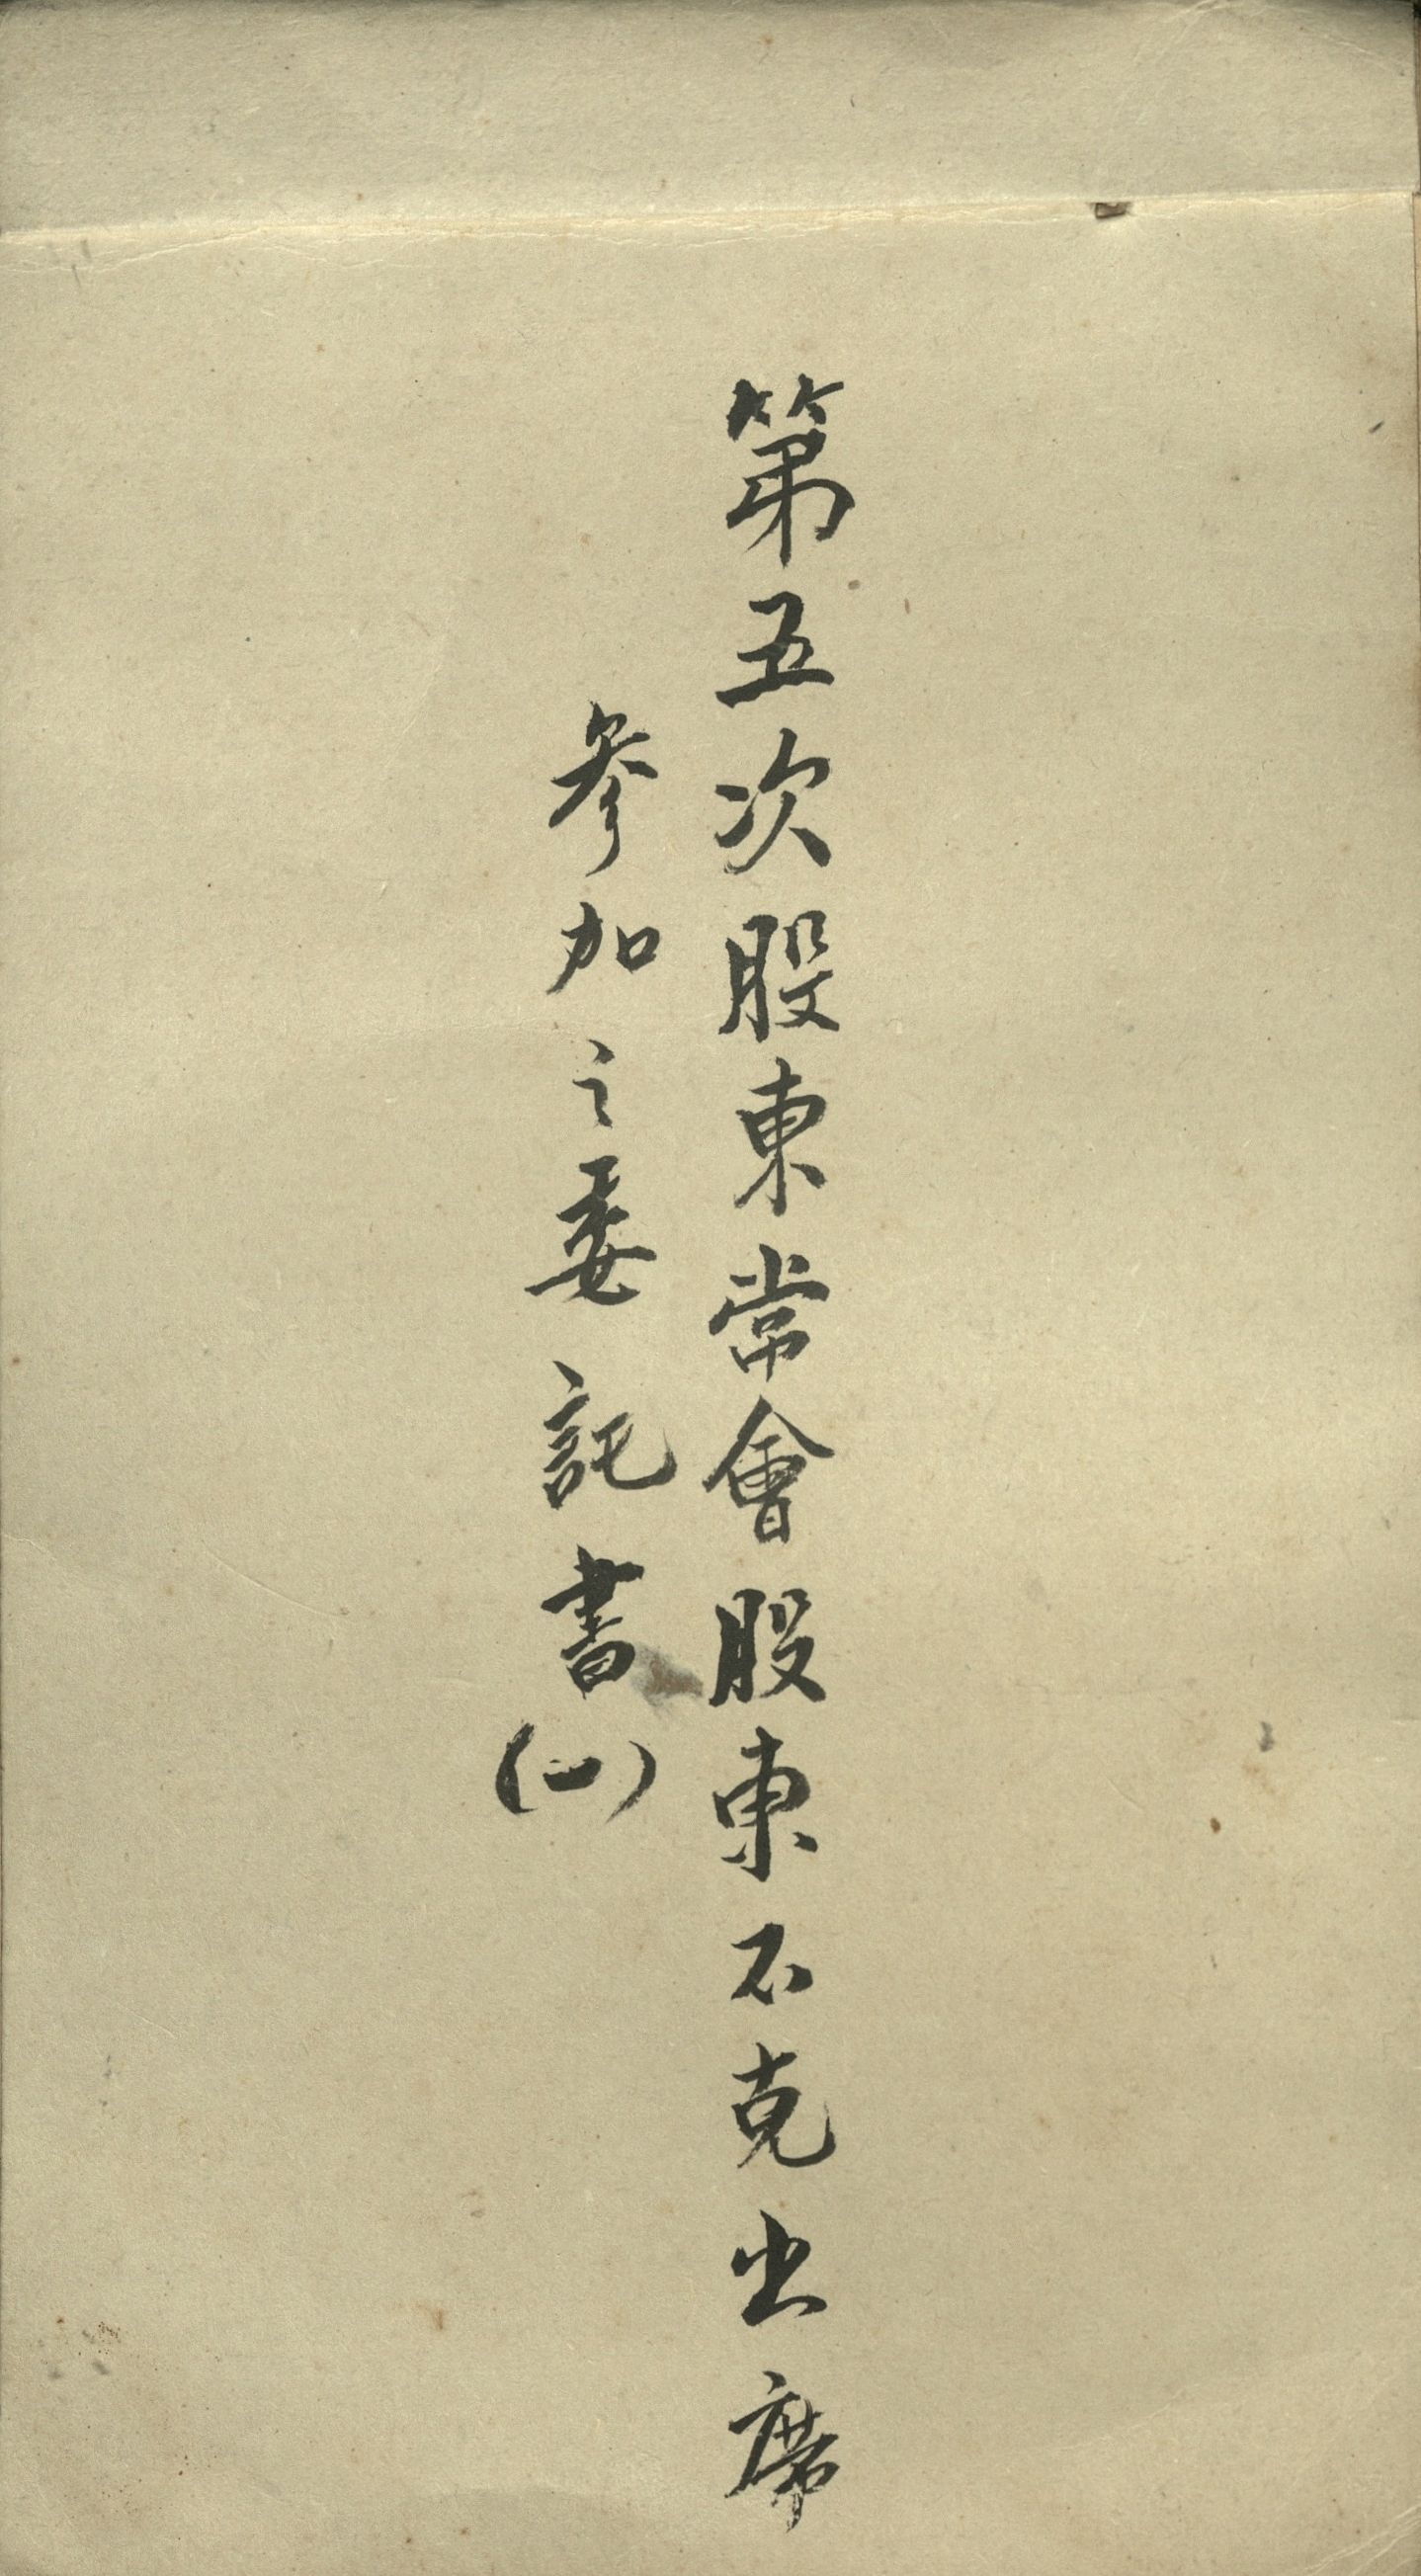 第五次股東常會股東不克出席
參加之委託書(一)